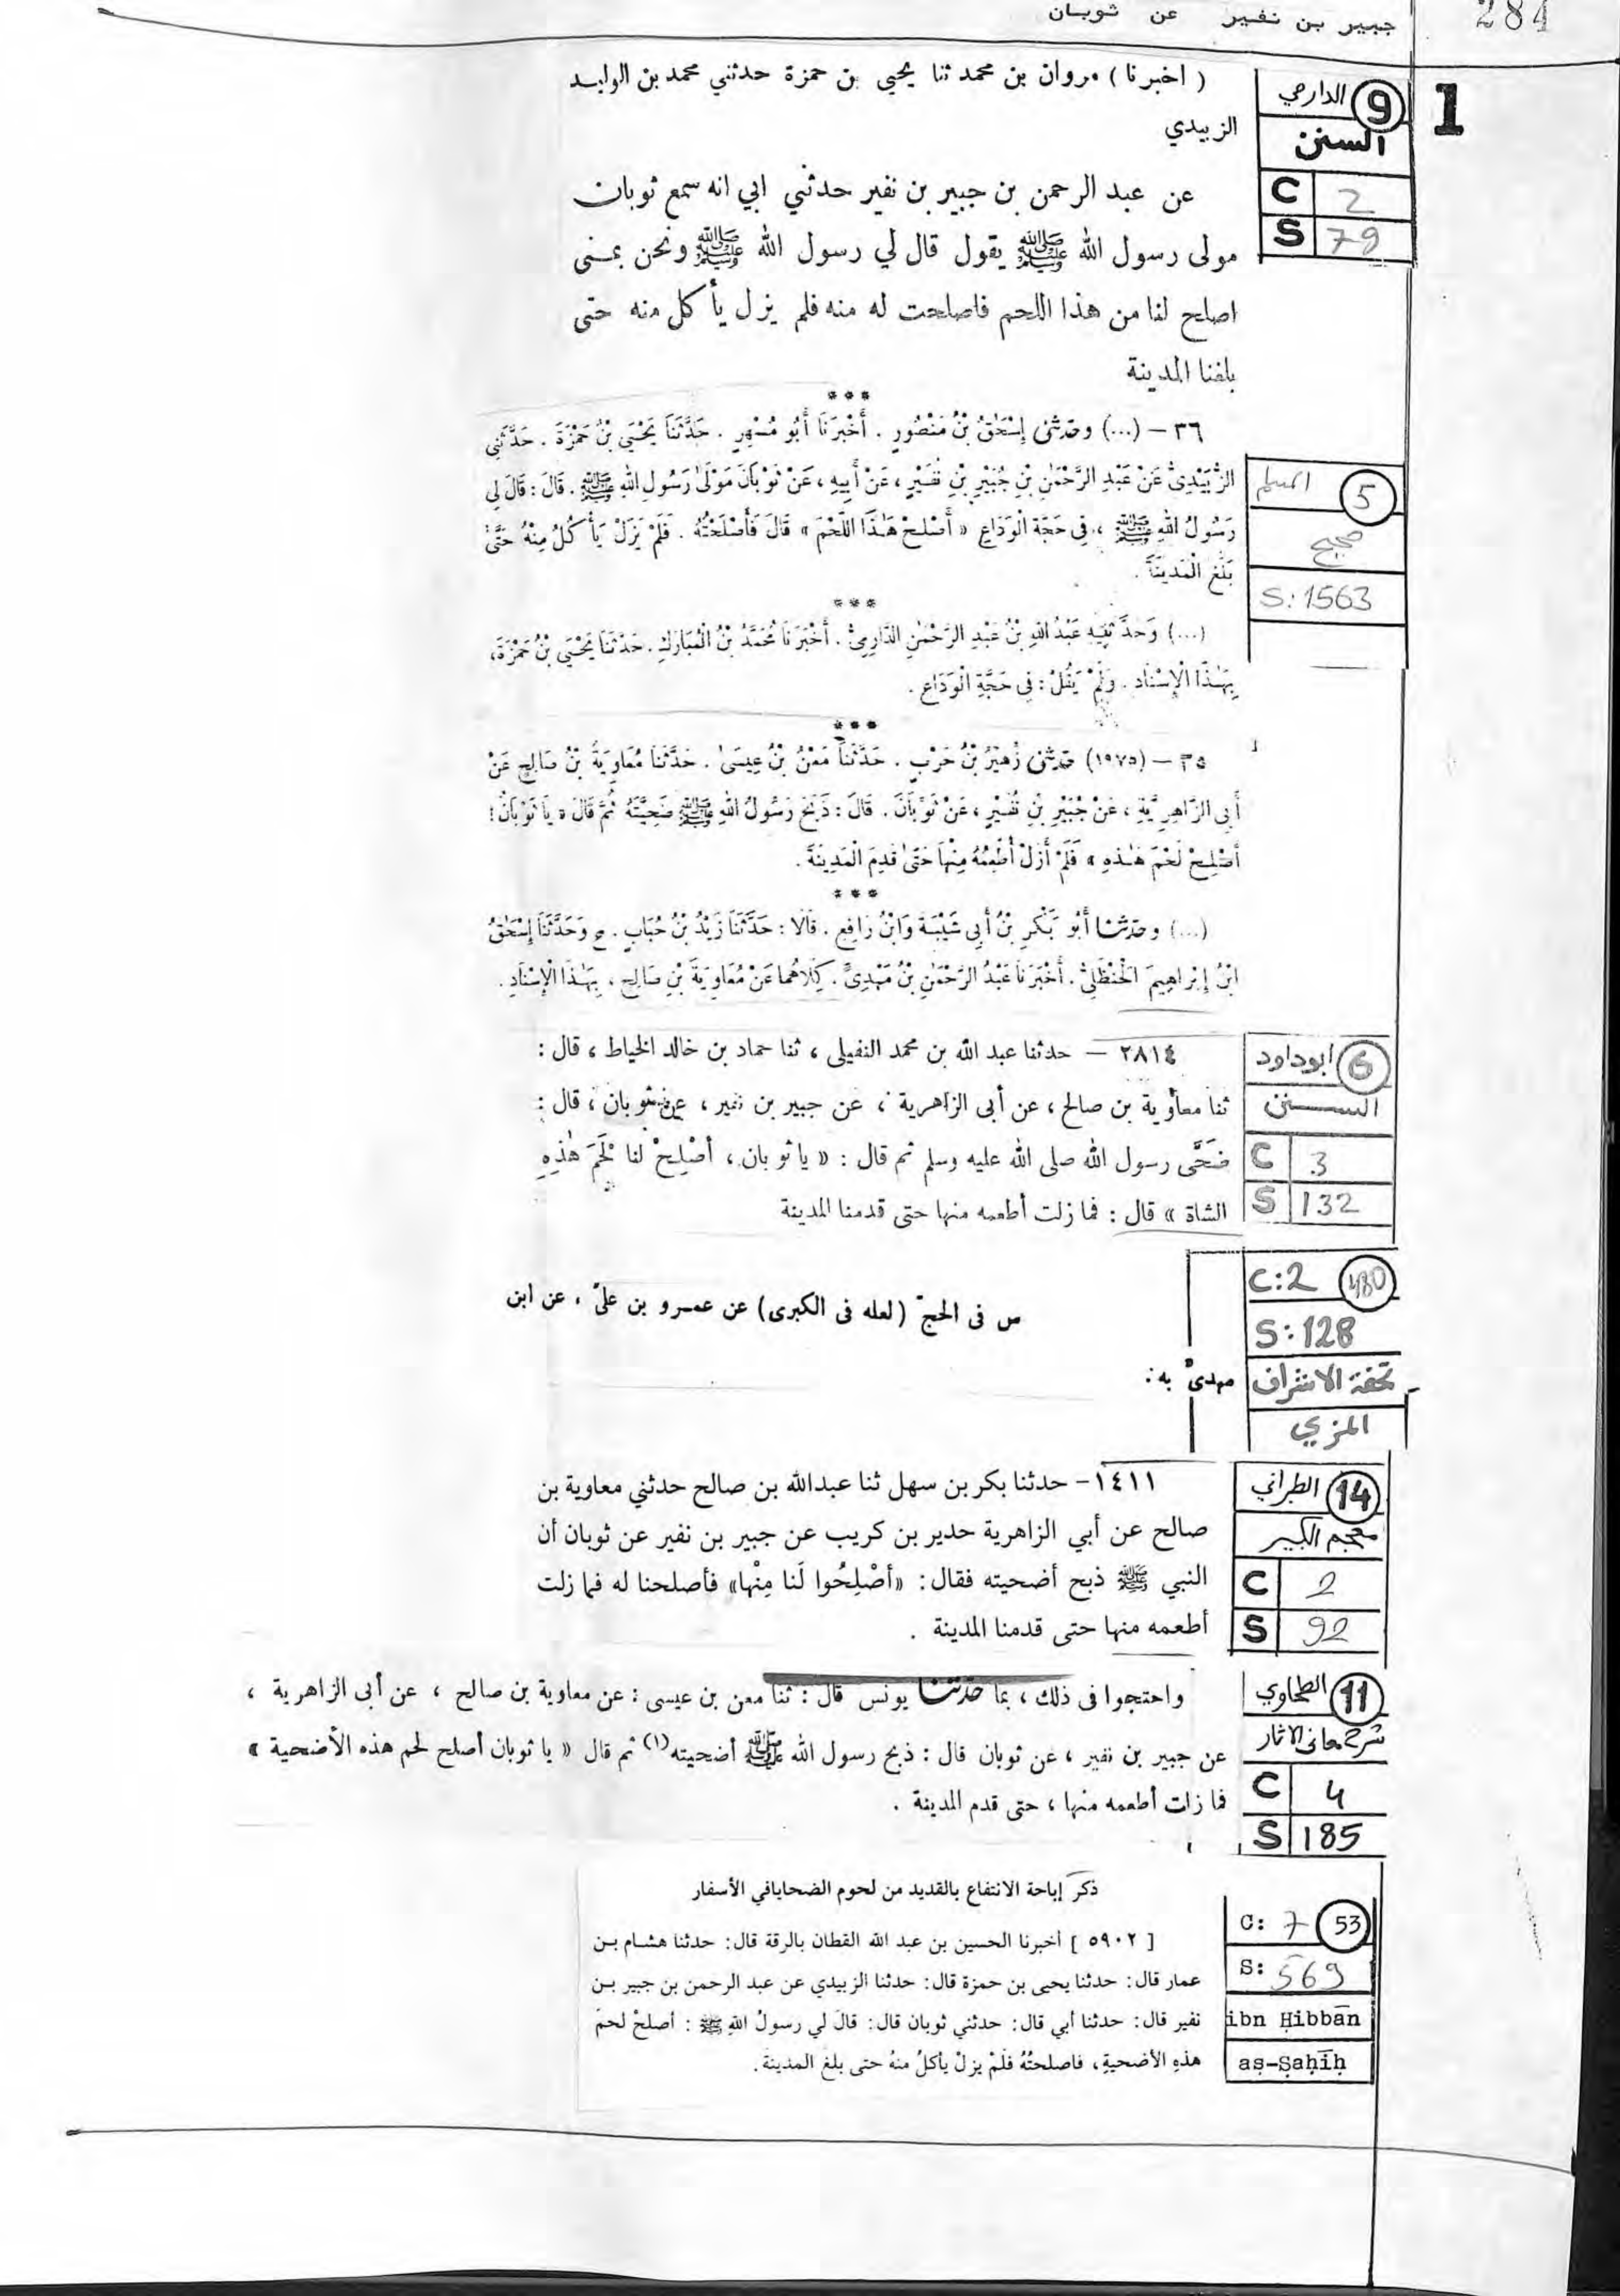 284
جبير بن نفير عن ثوبان
1
9 الدارمي
السنن
C 2
S 79
( اخبرنا ) مروان بن محمد ثنا يحيى بن حمزة حدثني محمد بن الوليد
الزبيدي
عن عبد الرحمن بن جبير بن نفير حدثني ابي انه سمع ثوبان
مولى رسول الله ﷺ يقول قال لي رسول الله ﷺ ونحن بمنى
اصلح لنا من هذا اللحم فاصلحت له منه فلم يزل يأكل منه حتى
بلغنا المدينة
***
5 المسلم
صحيح
S: 1563
٣٦ – (...) وحدثنى إِسْحَٰقُ بْنُ مَنْصُورٍ . أَخْبَرَنَا أَبُو مُسْهِرٍ . حَدَّثَنَا يَحْيَى بْنُ حَمْزَةَ . حَدَّثَنِي
الزُّبَيْدِىُّ عَنْ عَبْدِ الرَّحْمَٰنِ بْنِ جُبَيْرِ بْنِ نُفَيْرٍ ، عَنْ أَبِيهِ ، عَنْ ثَوْبَانَ مَوْلَىٰ رَسُولِ اللهِ ﷺ . قَالَ : قَالَ لِي
رَسُولُ اللهِ ﷺ ، فِي حَجَّةِ الْوَدَاعِ « أَصْلِحْ هَٰذَا اللَّحْمَ » قَالَ فَأَصْلَحْتُهُ . فَلَمْ يَزَلْ يَأْكُلُ مِنْهُ حَتَّىٰ
بَلَغَ الْمَدِينَةَ .
***
(...) وَحَدَّثَنِيهِ عَبْدُ اللهِ بْنُ عَبْدِ الرَّحْمَٰنِ الدَّارِمِىُّ . أَخْبَرَنَا مُحَمَّدُ بْنُ الْمُبَارَكِ . حَدَّثَنَا يَحْيَى بْنُ حَمْزَةَ،
بِهَٰذَا الْإِسْنَادِ . وَلَمْ يَقُلْ : فِى حَجَّةِ الْوَدَاعِ .
***
٣٥ – (١٩٧٥) حدثنى زُهَيْرُ بْنُ حَرْبٍ . حَدَّثَنَا مَعْنُ بْنُ عِيسَىٰ . حَدَّثَنَا مُعَاوِيَةُ بْنُ صَالِحٍ عَنْ
أَبِى الزَّاهِرِيَّةِ ، عَنْ جُبَيْرِ بْنِ نُفَيْرٍ ، عَنْ ثَوْبَانَ . قَالَ : ذَبَحَ رَسُولُ اللهِ ﷺ ضَحِيَّتَهُ ثُمَّ قَالَ « يَا ثَوْبَانُ !
أَصْلِحْ لَحْمَ هَٰذِهِ » فَلَمْ أَزَلْ أُطْعِمُهُ مِنْهَا حَتَّىٰ قَدِمَ الْمَدِينَةَ .
***
(...) وحدثنا أَبُو بَكْرِ بْنُ أَبِى شَيْبَةَ وَابْنُ رَافِعٍ . قَالَا : حَدَّثَنَا زَيْدُ بْنُ حُبَابٍ . ح وَحَدَّثَنَا إِسْحَٰقُ
ابْنُ إِبْرَاهِيمَ الْحَنْظَلِىُّ . أَخْبَرَنَا عَبْدُ الرَّحْمَٰنِ بْنُ مَهْدِىٍّ . كِلَاهُمَا عَنْ مُعَاوِيَةَ بْنِ صَالِحٍ ، بِهَٰذَا الْإِسْنَادِ .
6 أبوداود
السنن
C 3
S 132
٢٨١٤ – حدثنا عبد الله بن محمد النفيلى ، ثنا حماد بن خالد الخياط ، قال :
ثنا معاوية بن صالح ، عن أبى الزاهرية ، عن جبير بن نفير ، عن ثوبان ، قال :
ضَحَّى رسول الله صلى الله عليه وسلم ثم قال : « يا ثوبان ، أصْلِحْ لنا لَحْمَ هٰذِهِ
الشاة » قال : فما زلت أطعمه منها حتى قدمنا المدينة
C:2 480
S: 128
تحفة الاشراف
المزي
س فى الحجّ (لعله فى الكبرى) عن عمرو بن علىّ ، عن ابن
مهدىّ به :
14 الطبراني
معجم الكبير
C 2
S 92
١٤١١- حدثنا بكر بن سهل ثنا عبدالله بن صالح حدثني معاوية بن
صالح عن أبي الزاهرية حدير بن كريب عن جبير بن نفير عن ثوبان أن
النبي ﷺ ذبح أضحيته فقال : «أصْلِحُوا لَنا مِنْها» فأصلحنا له فما زلت
أطعمه منها حتى قدمنا المدينة .
11 الطحاوي
شرح معانى الاثار
C 4
S 185
واحتجوا فى ذلك ، بما حدثنا يونس قال : ثنا معن بن عيسى : عن معاوية بن صالح ، عن أبى الزاهرية ،
عن جبير بن نفير ، عن ثوبان قال : ذبح رسول الله ﷺ أضحيته(١) ثم قال « يا ثوبان أصلح لحم هذه الأضحية »
فما زلت أطعمه منها ، حتى قدم المدينة .
C: 7 53
S: 569
ibn Ḥibbān
aṣ-Ṣaḥīḥ
ذكر إباحة الانتفاع بالقديد من لحوم الضحايافي الأسفار
[ ٥٩٠٢ ] أخبرنا الحسين بن عبد الله القطان بالرقة قال: حدثنا هشام بن
عمار قال: حدثنا يحيى بن حمزة قال: حدثنا الزبيدي عن عبد الرحمن بن جبير بن
نفير قال: حدثنا أبي قال: حدثني ثوبان قال: قالَ لي رسولُ اللهِ ﷺ : أصلحْ لحمَ
هذهِ الأضحيةِ، فاصلحتُهُ فلَمْ يزلْ يأكلُ منهُ حتى بلغَ المدينةَ.